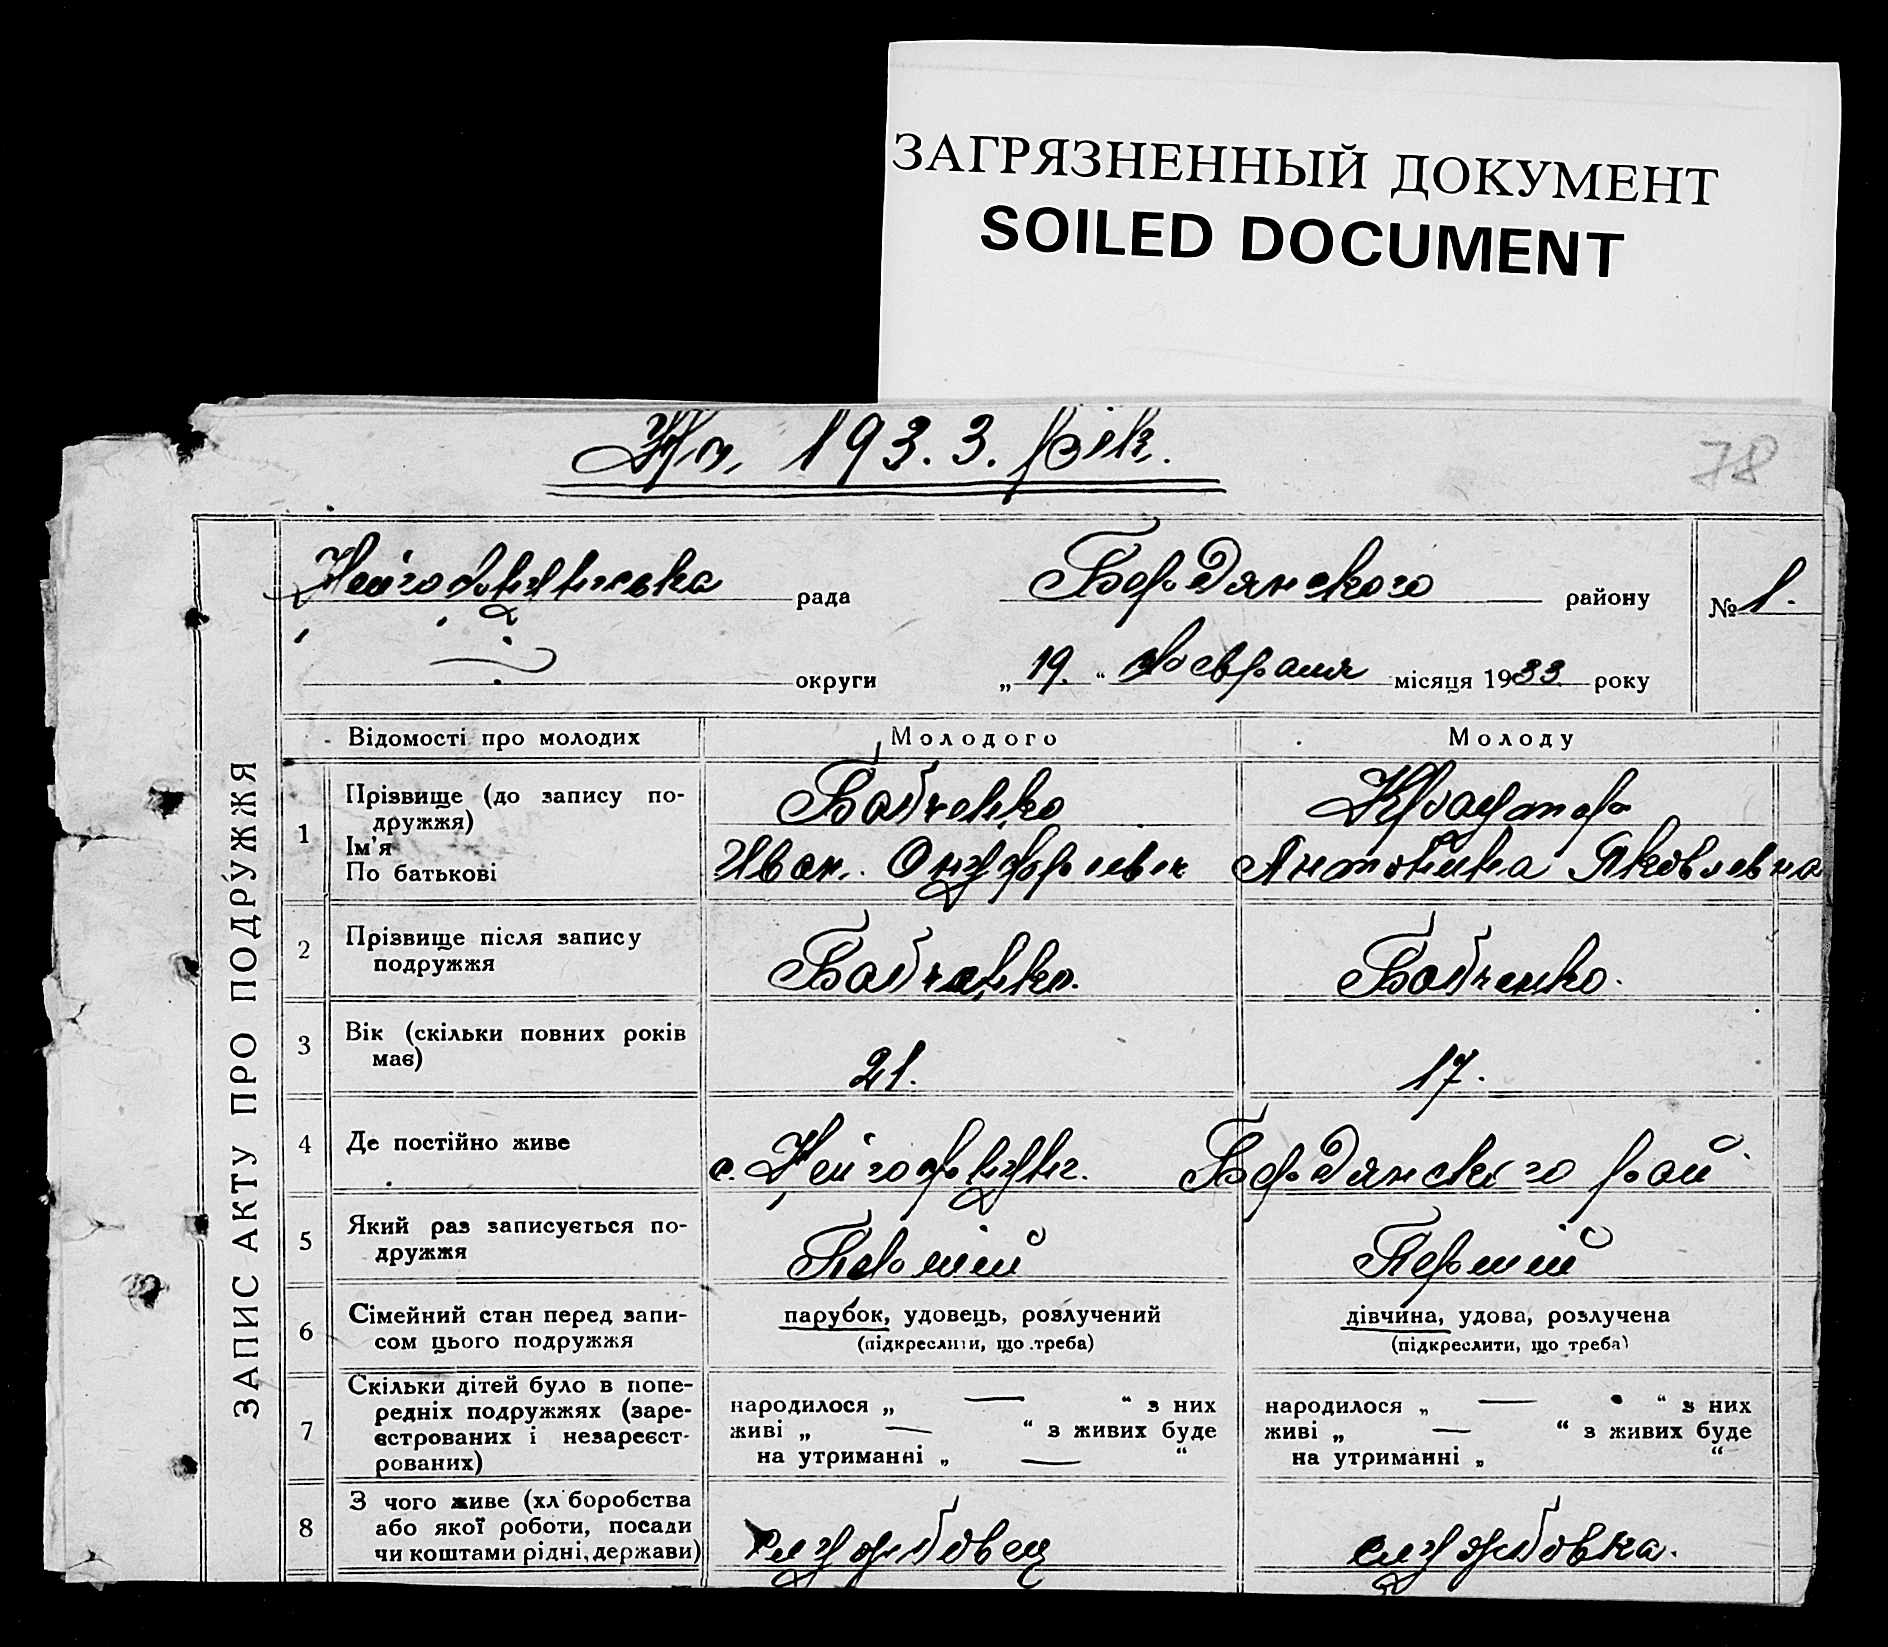 ЗАГРЯЗНЕННЫЙ ДОКУМЕНТ
SOILED DOCUMENT
На 193.3. рік.
78
рада Бердянського району № 1.
округи „ 19. “ Февраля місяця 1933 року
ЗАПИС АКТУ ПРО ПОДРУЖЖЯ
Відомості про молодих Молодого Молоду
1 Прізвище (до запису по-
дружжя) Бабченко
Ім'я
По батькові Иван Антонина Яковлевна
2 Прізвище після запису
подружжя Бабченко. Бабченко.
3 Вік (скільки повних років
має) 21. 17.
4 Де постійно живе с. Бердянського рай
5 Який раз записується по-
дружжя Перший Перший
6 Сімейний стан перед запи-
сом цього подружжя
парубок, удовець, розлучений дівчина, удова, розлучена
(підкреслити, що треба) (підкреслити, що треба)
7 Скільки дітей було в попе-
редніх подружжях (заре-
єстрованих і незареєст-
рованих)
народилося „ — “ з них народилося „ — “ з них
живі „ — “ з живих буде живі „ — “ з живих буде
на утриманні „ — “ на утриманні „ “
8 З чого живе (хліборобства
або якої роботи, посади
чи коштами рідні, держави) службовец службовка.